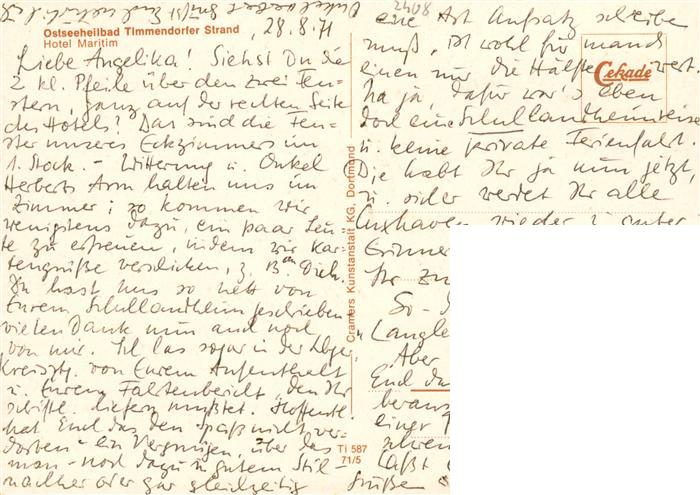 28.8.71
Ostseeheilbad Timmendorfer Strand
Hotel Maritim
Liebe Angelika! Siehst Du die
2 kl. Pfeile über den zwei Fen=
stern, ganz auf der rechten Seite
des Hotels? Das sind die Fen=
ster unseres Eckzimmers im
1. Stock. - Witterung u. Onkel
Herberts Arm halten uns im
Zimmer; so kommen wir
wenigstens dazu, ein paar Leu=
te zu erfreuen, indem wir Kar=
tengrüße verschicken, z. B. an Dich.
Du hast uns so nett von
Eurem Schullandheim geschrieben
vielen Dank nun auch noch
von mir. Ich las sogar in der
Kreisztg. von Eurem Aufenthalt
u. Eurem Fahrtenbericht, den Ihr
schriftl. liefern mußtet. Hoffentl.
hat Euch das den Spaß nicht ver=
dorben - ein Vergnügen, über das
man - noch dazu in gutem Stil -
nachher oder gar gleichzeitig
Cramers Kunstanstalt KG, Dortmund
Ti 587
71/5
2408
eine Art Aufsatz schreiben
muß, ist wohl für manch
einen nur die Hälfte wert.
Cekade
Na ja, dafür war's eben
doch eine Schullandheimreise
u. keine private Ferienfahrt.
Die habt Ihr ja nun jetzt,
u. sicher werdet Ihr alle
Cuxhaven wieder in guter
Ihr zu
So -
Aber
Euch da
einer
Laßt
Grüßen